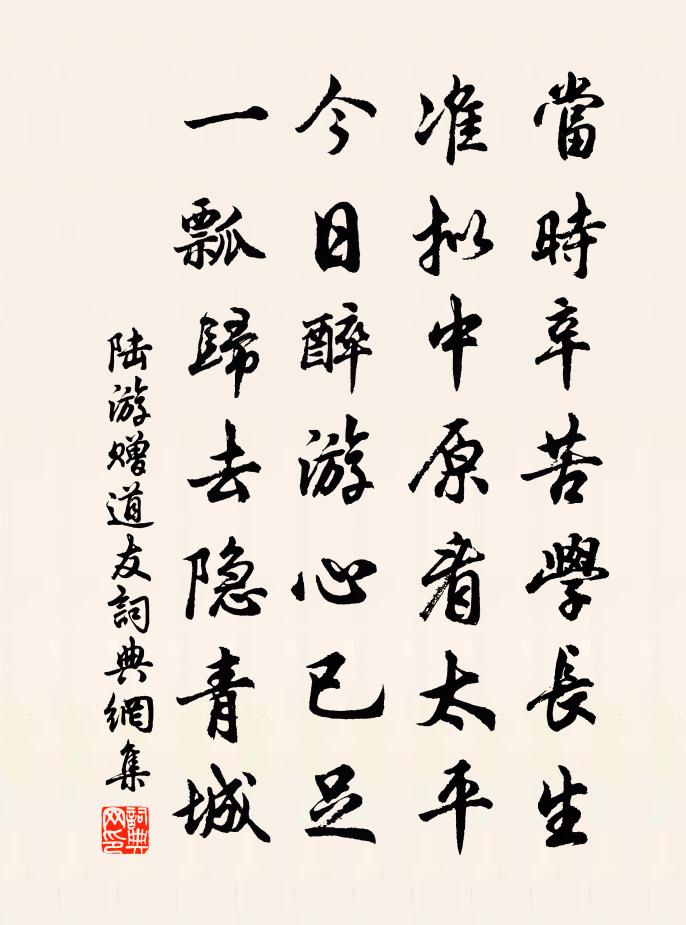 當時辛苦學長生
准拟中原看太平
今日醉游心已足
一瓢歸去隐青城
陆游赠道友詞典網集
詞典網印